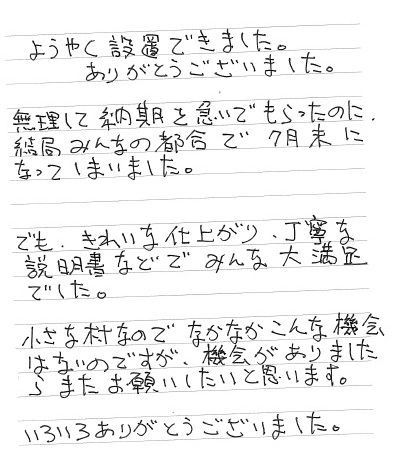 ようやく設置できました。
ありがとうございました。
無理して納期を急いでもらったのに、
結局みんなの都合で7月末に
なってしまいました。
でも、きれいな仕上がり、丁寧な
説明書などでみんな大満足
でした。
小さな村なのでなかなかこんな機会
はないのですが、機会がありました
らまたお願いしたいと思います。
いろいろありがとうございました。